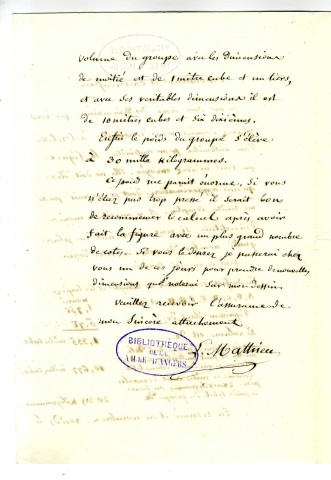 volume du groupe avec les dimensions
de moitié est de 1 mètre cube et un tiers,
et avec ses veritables dimensions il est
de 10 mètres cubes et six dixièmes.
Enfin le poids du groupe s'élève
à 30 mille kilogrammes.
Ce poids me parait énorme, si vous
n'étiez pas trop pressé il serait bon
de recommencer le calcul après avoir
fait la figure avec un plus grand nombre
de cotes. Si vous le desirez je passerai chez
vous un de ces jours pour prendre de nouvelles
dimensions que noterai sur mon dessin
veuillez recevoir l'assurance de
mon sincère attachement
L. Matthieu
BIBLIOTHÈQUE
DE LA
VILLE D'ANGERS